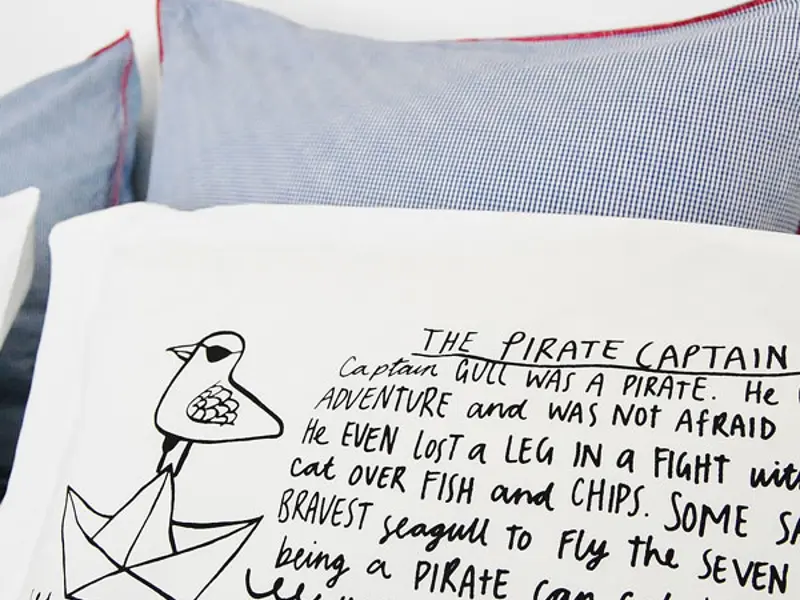 THE PIRATE CAPTAIN
Captain GULL WAS A PIRATE. He
ADVENTURE and WAS NOT AFRAID
He EVEN LOST a LEG IN a FIGHT with
cat OVER FISH and CHIPS. SOME
BRAVEST seagull to Fly the SEVEN
being a PIRATE can